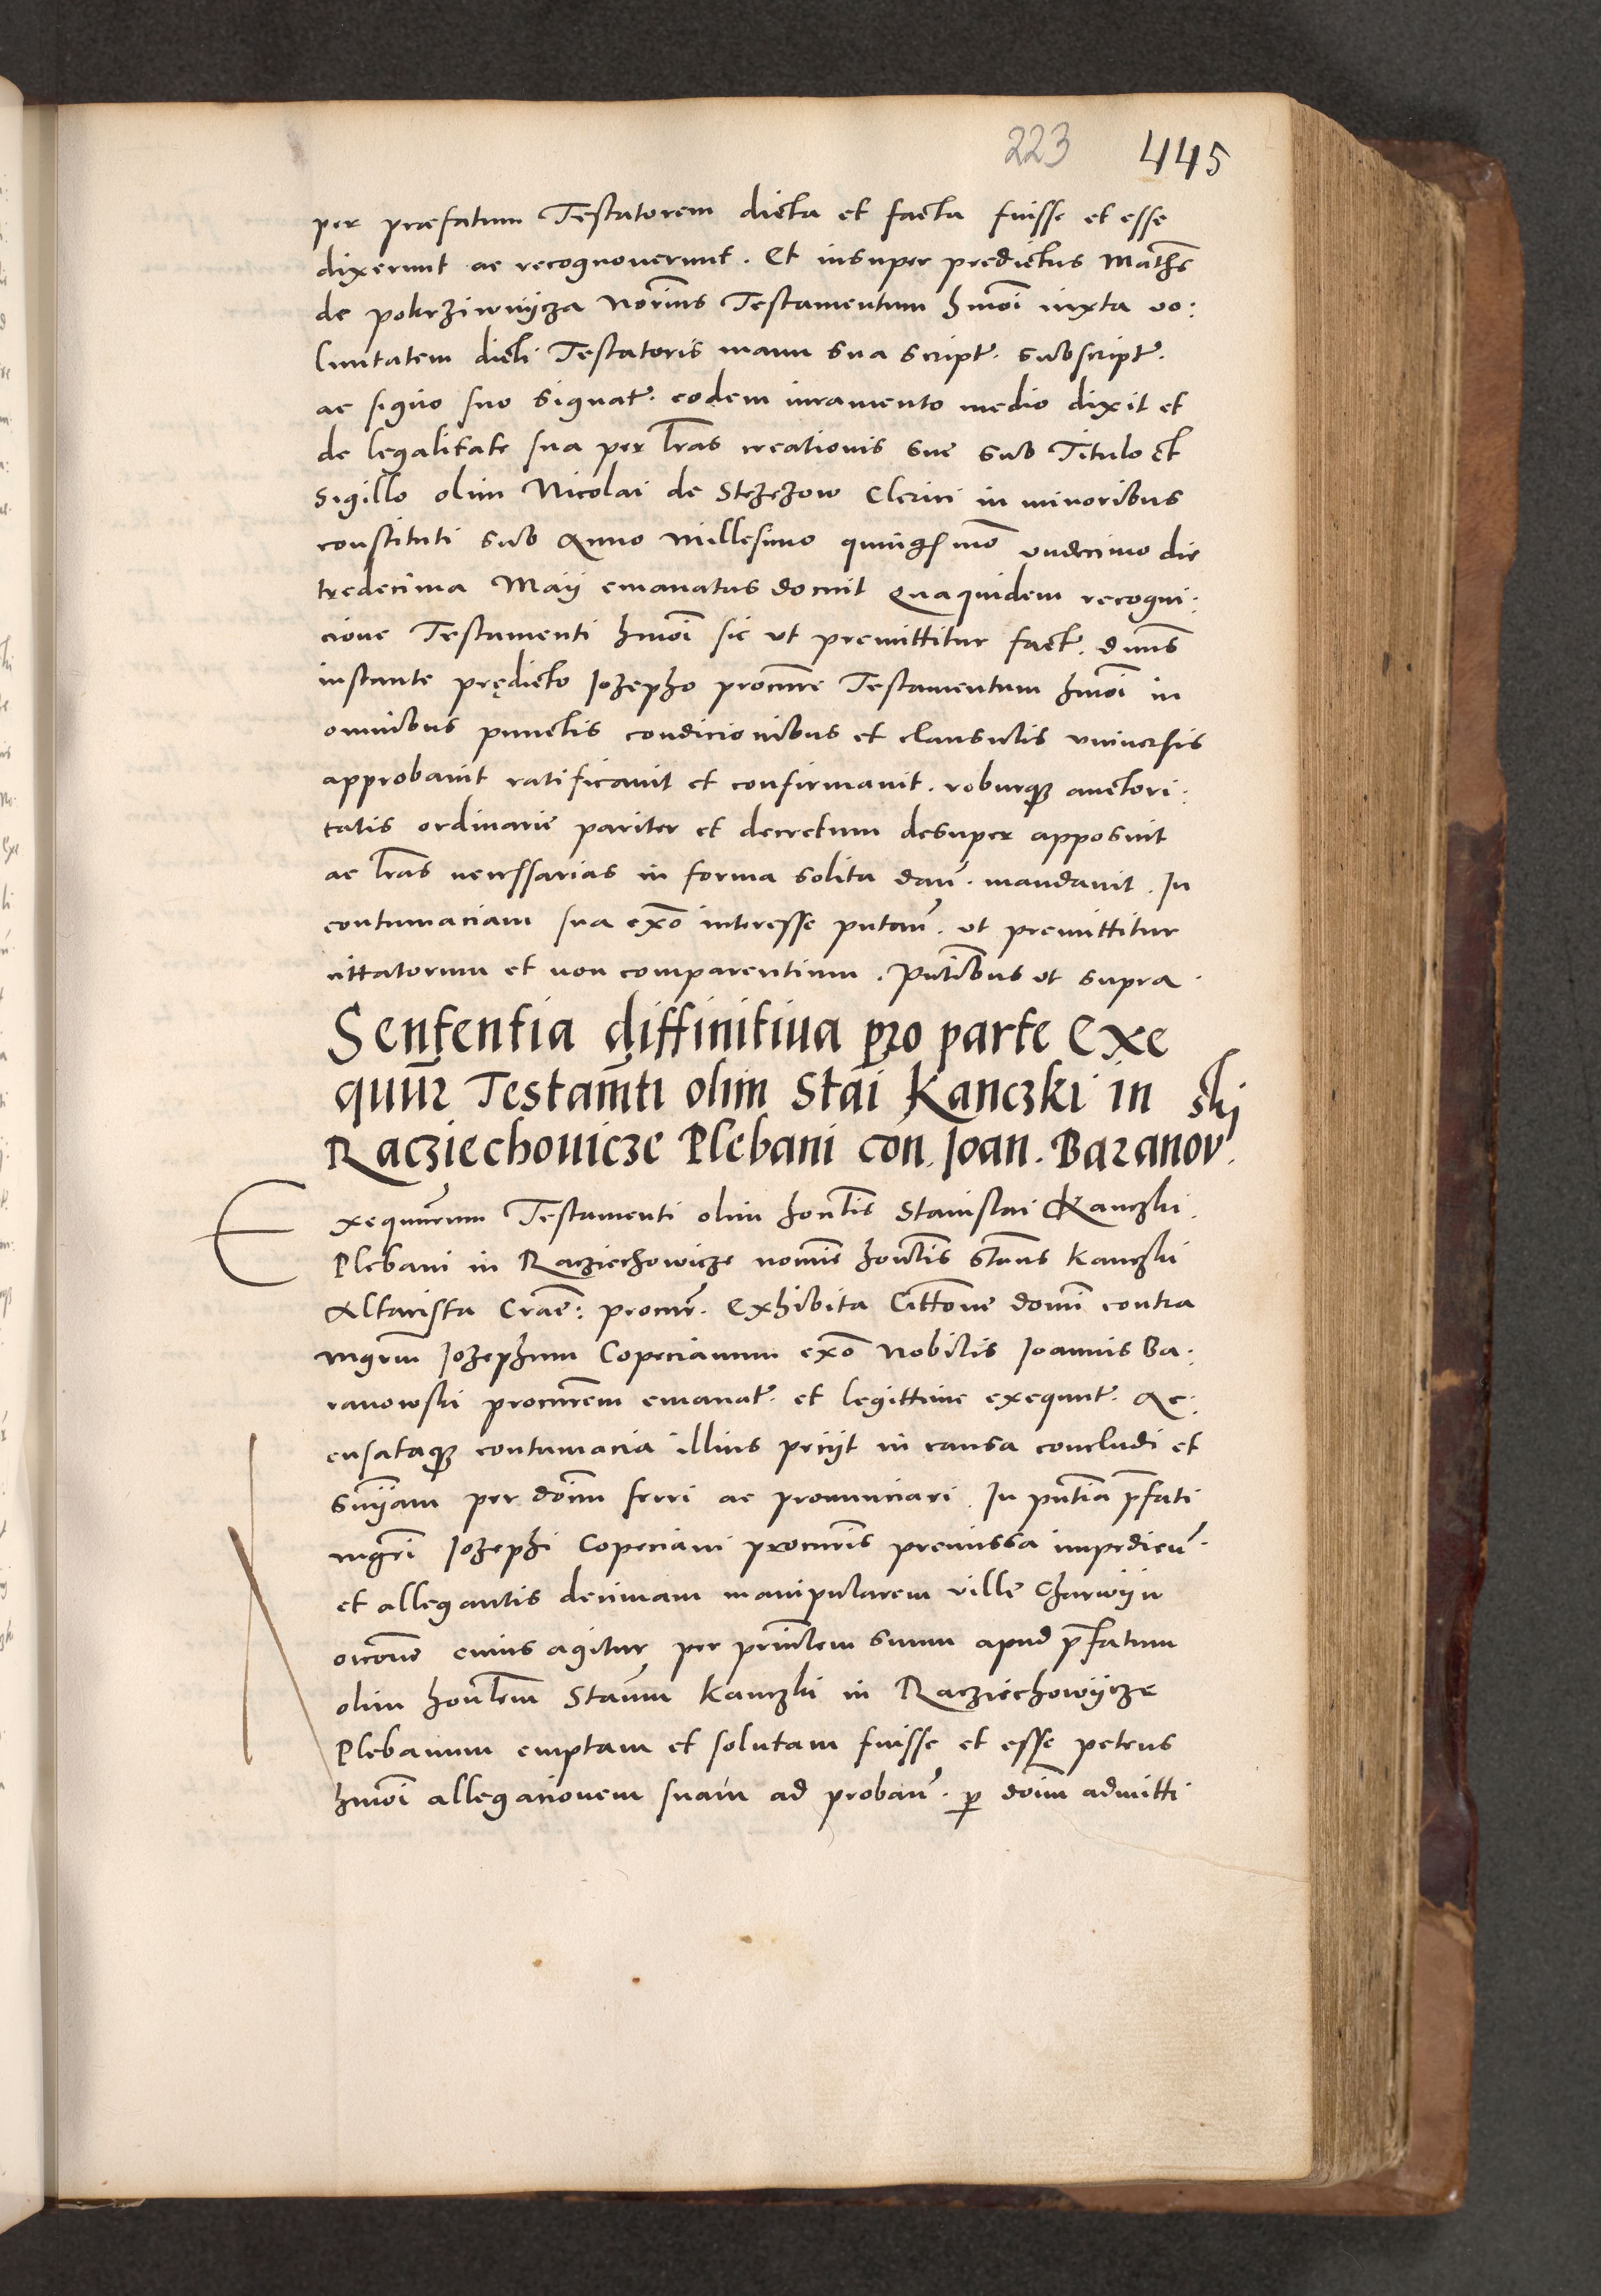 223 445
per præfatum Testatorem dicta et facta fuisse et esse
dixerunt ac recognoverunt. Et insuper predictus Maths
de pokrziwnycza Norius Testamentum hmoi iuxta vo:
luntatem dicti Testatoris manu sua script. subscript.
ac signo suo signat. eodem iuramento medio dixit et
de legalitate sua per lras creationis sue sub Titulo et
Sigillo olim Nicolai de Stezezow Clerici in minoribus
constituti sub Anno Millesimo quingesmo undecimo die
tredecima Maij emanatus docuit Quaquidem recogni:
cione Testamenti hmoi sic ut premittitur fact. dnus
instante prędicto Jozepho procure Testamentum hmoi in
omnibus punctis condicionibus et clausulis universis
approbavit ratificavit et confirmavit. roburq auctori:
tatis ordinarie pariter et decretum desuper apposuit
ac lras necessarias in forma solita dan. mandavit. In
contumaciam sua exo interesse putan. ut premittitur
cittatorum et non comparentium. Pntibus ut supra.
Sententia diffinitiva pro parte Exe
quur Testamti olim Stai Kanczki in ski
Racziechovicze Plebani con. Joan. Baranov.
Exequurum Testamenti olim hontis Stanislai Kanczki
Plebani in Racziechowicze nomine hontis Stanus Kanczki
Altarista Crae: procur. Exhibita Cittone domi contra
mgrum Jozephum Copecianum exo Nobilis Joannis Ba:
ranowski procurem emanat. et legittime exequut. Ac:
cusataq contumacia illius petiyt in causa concludi et
sniam per donm ferri ac pronunciari. In pntia pfati
mgri Jozephi Copeciani procuris premissa impedien.
et allegantis decimam manipularem ville Charwyin
occone cuius agitur per princlem suum apud pfatum
olim honlem Staum Kanczki in Racziechowycze
Plebanum emptam et solutam fuisse et esse petens
hmoi allegacionem suam ad proban. p donm admitti